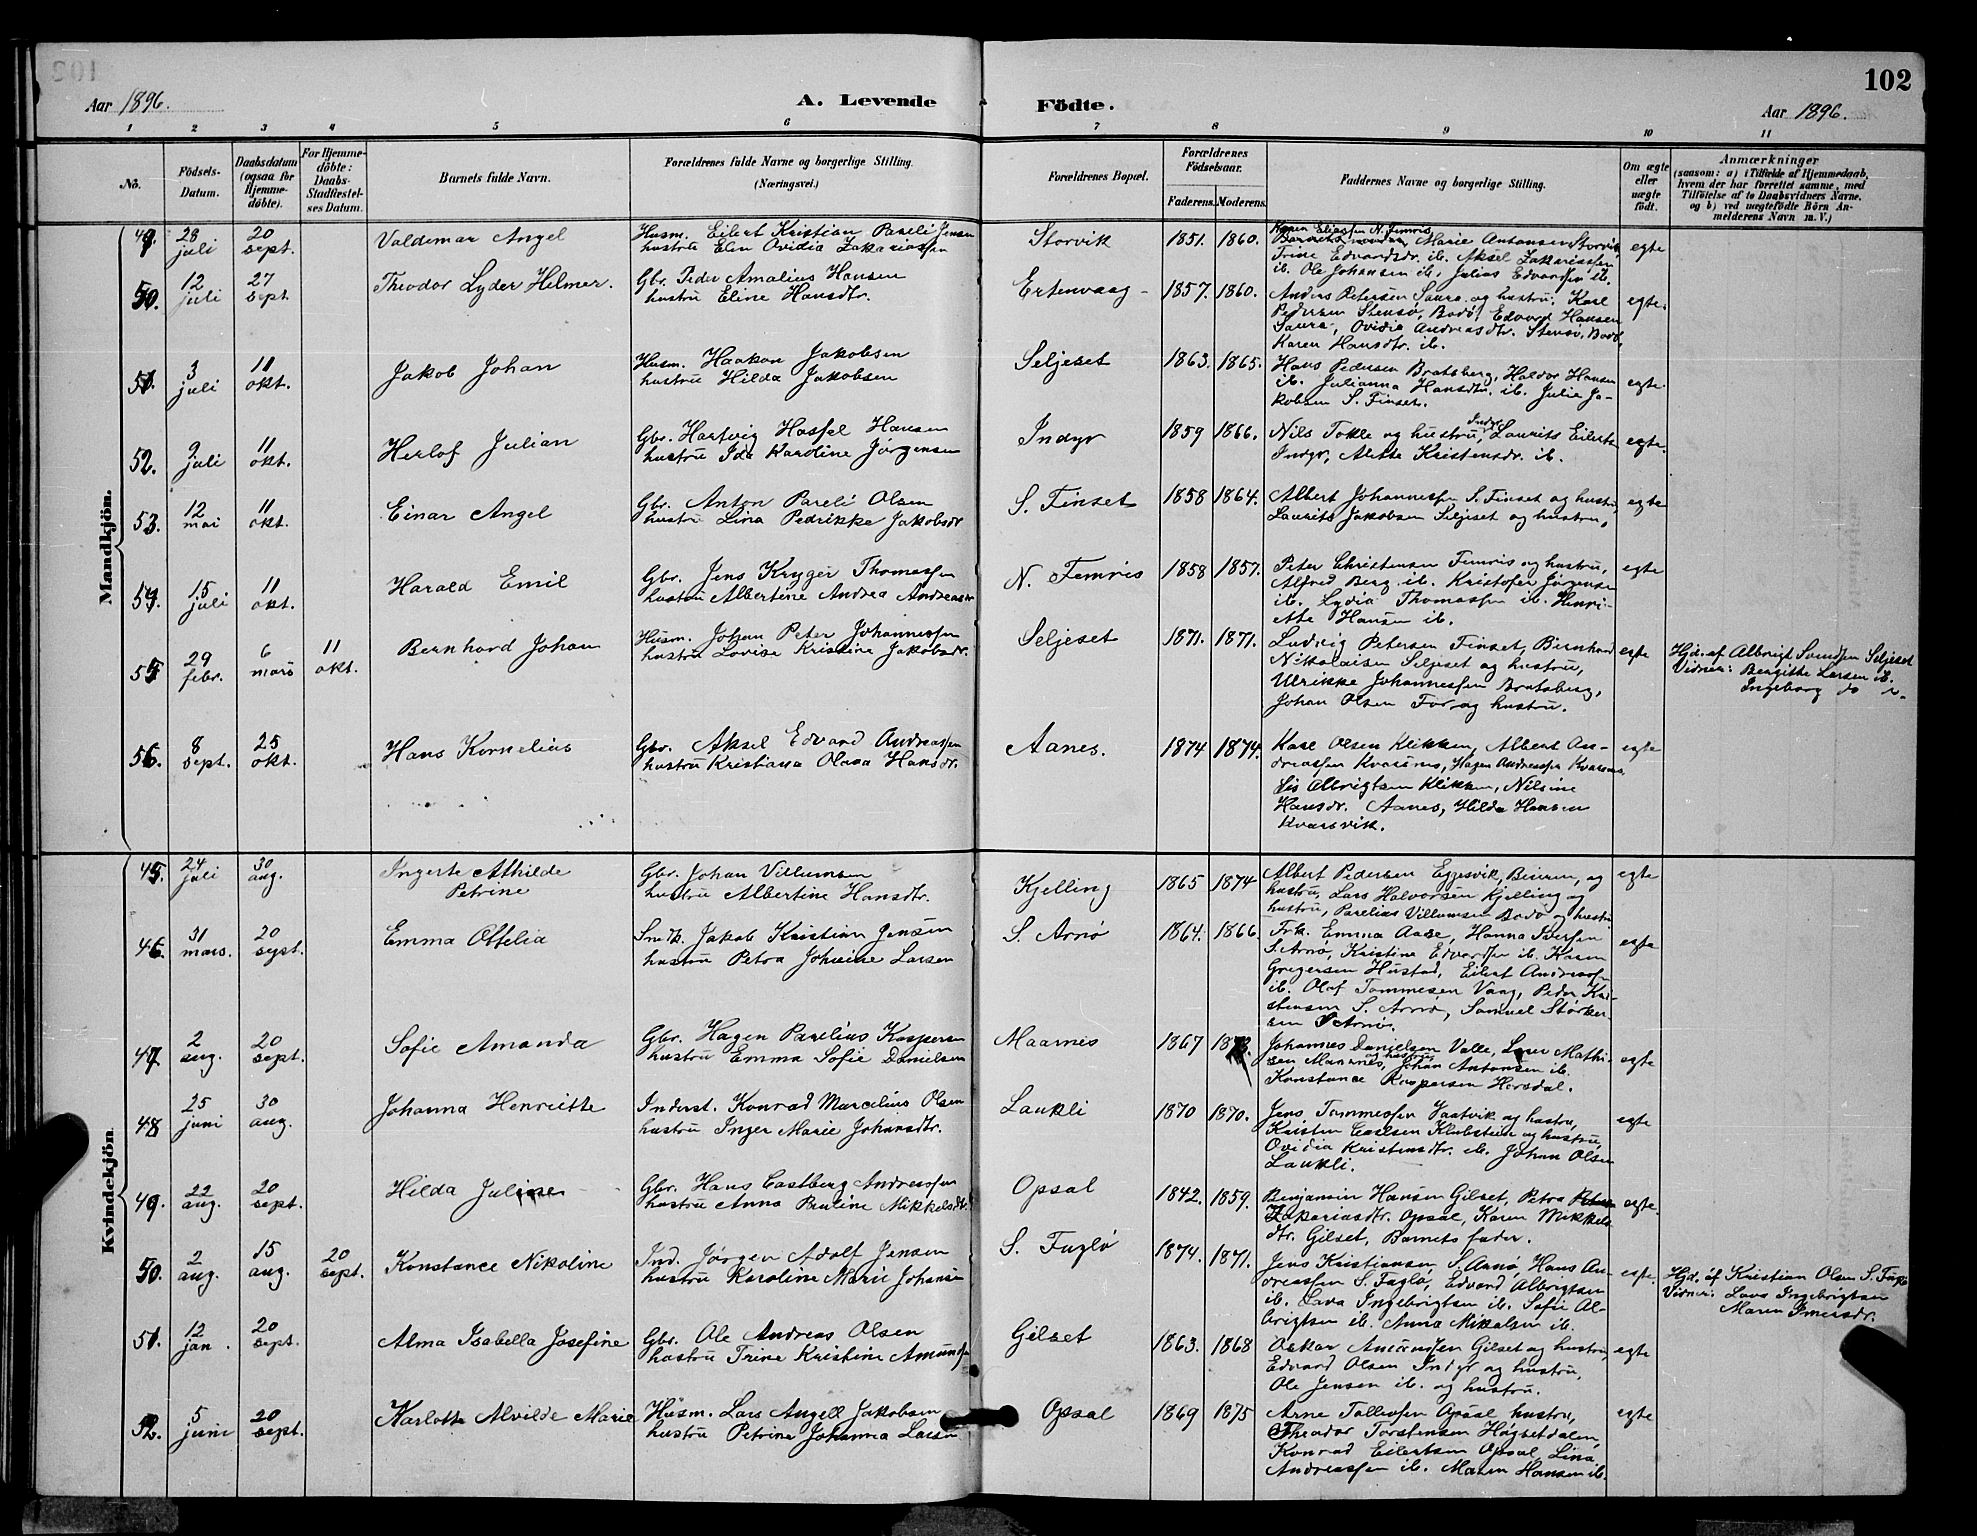 102
Aar 1896. A. Levende Födte. Aar 1896.
1 2 3 4 5 6 7 8 9 10 11
No. Födsels-Datum. Daabsdatum (ogsaa for Hjemme-döbte). For Hjemme-döbte: Daabs-Stadfæstel-ses Datum. Barnets fulde Navn. Forældrenes fulde Navne og borgerlige Stilling. (Næringsvei.) Forældrenes Bopæl. Forældrenes Födselsaar. Faderens. Moderens. Faddernes Navne og borgerlige Stilling. Om ægte eller uægte födt. Anmærkninger (saasom: a) i Tilfælde af Hjemmedaab, hvem der har forrettet samme, med Tilföielse af to Daabsvidners Navne, og b) ved uægtefödte Börn An-melderens Navn m. V.)
Mandkjön.
49. 28 juli 20 sept. Valdemar Angel Husm. Eilert Kristian Pareli Jensen
hustru Elen Ovidia Zakariassen Storvik 1851. 1860. Karen Eliassen N. Femris
Marie Antonsen Storvik,
Trine Edvardsdr. ib. Aksel Zakariassen
ib. Ole Johansen ib. Julius Edvardsen ib. egte
50. 12 juli 27 sept Theodor Lyder Helmer. Gbr. Peder Amalius Hansen
hustru Eline Hansdtr. Ertenvaag 1857. 1860. Anders Petersen Saura og hustru, Karl
Pedersen Stensø, Bodø, Edvard Hansen
Saura, Ovidia Andreasdtr. Stensø, Bodø,
Karen Hansdtr. ib. egte.
51. 3 juli 11 okt. Jakob Johan Husm. Haakon Jakobsen
hustru Hilda Jakobsen Seljeset 1863. 1865. Hans Pedersen Bratsberg, Haldor Hansen
ib. Julianna Hansdtr. ib. Julie Ja-
kobsen S. Finset. egte.
52. 9 juli 11 okt. Herlof Julian Gbr. Hartvig Hassel Hansen
hustru Ida Karoline Jørgensen Indyr 1859 1866. Nils Tokle og hustru, Indyr Laurits Eilerts.
Indyr, Alette Kristensdr. ib. egte.
53. 12 mai 11 okt. Einar Angel Gbr. Anton Pareli Olsen
hustru Lina Pedrikke Jakobsdr S. Finset 1858 1864. Albert Johannessen S. Finset og hustru,
Laurits Jakobsen Seljeset og hustru, egte
54. 15 juli 11 okt. Harald Emil Gbr. Jens Kryger Thomassen
hustru Albertine Andrea Andreasdr N. Femris 1858 1857. Peter Christensen Femris og hustru,
Alfred Berg ib. Kristofer Jørgensen
ib. Lydia Thomassen ib. Henri-
ette Hansen ib. egte
55 29 febr. 6 mars 11 okt. Bernhard Johan Husm. Johan Peter Johannessen
hustru Lovise Kristine Jakobsdr. Seljeset 1871. 1871. Ludvig Petersen Finset, Bernhard
Nikolaisen Seljeset og hustru,
Ulrikke Johannessen Bratsberg,
Johan Olsen For og hustru. egte Hjd. af Albrigt Seljeset
Vidner: Bergitte Larsen ib.
Ingeborg do
56. 8 sept. 25 okt. Hans Kornelius Gbr. Aksel Edvard Andreassen
hustru Kristiana Olava Hansdr. Aanes. 1874 1874. Karl Olsen Klikken, Albert An-
dreassen Kvarsnes, Hagen Andreassen Kvarsnes
Albrigtsen Klikken, Nilsine
Hansdr. Aanes, Hilda Hansen
Kvarsvik. egte
Kvindekjön.
45. 24 juli 30 aug. Ingerte Athilde
Petrine Gbr. Johan Villumsen
hustru Albertine Hansdtr. Kjelling 1865 1874 Albert Pedersen Eggesvik, Beieren, og
hustru, Lars Halvorsen Kjelling og
hustru, Parelius Villumsen Bodø og hustru egte
46. 31 mars. 20 sept. Emma Ottelia Smdk. Jakob Kristian Jensen
hustru Petra Johanne Larsen S. Arnø 1864. 1866. Frk. Emma Aase, Hanna Iversen
S. Arnø, Kristina Edvardsen ib. Karen
Gregersen Hustad, Eilert Andreassen
ib. Olaf Tommesen Vaag, Peder Kri-
stensen S. Arnø, Samuel Størker-
sen S Arnø. egte
47. 2 aug. 20 sept. Sofie Amanda Gbr. Hagen Parelius Kaspersen
hustru Emma Sofie Danielsen Maarnes 1867 1873. Johannes Danielsen Valle, Lars Mathi-
sen Maarnes, og hustru Johan Antonsen ib.
Konstance Kaspersen Horsdal. egte
48 25 juni 30 aug. Johanna Henriette Inderst. Konrad Marcelius Olsen
hustru Inger Marie Johansdtr. Laukli 1870 1870. Jens Tommessen Vaatvik og hustru,
Kristen Carlsen Klubstein og hustru,
Ovidia Kristensdtr. ib. Johan Olsen
Laukli. egte
49. 22 aug. 20 sept. Hilda Juline Gbr. Hans Eastberg Andreassen
hustru Anna Pauline Mikkelsdtr. Opsal 1842. 1859. Benjamin Hansen Gilset, Petra
Zakariasdtr. Opsal, Karen Mikkels
dtr. Gilset, Barnets fader. egte.
50. 2 aug. 15 aug. 20 sept. Konstance Nikoline Ind. Jørgen Adolf Jensen
hustru Karoline Marie Johansen S. Fuglø 1874. 1871. Jens Kristiansen S Arnø, Hans An-
dreassen S. Fuglø, Edvard Albrigtsen
ib. Lava Ingebrigtsen ib. Sofie Al-
brigtsen ib. Anna Mikalsen ib. egte. Hjd. af Kristian Olsen S. Fuglø
Vidner: Lava Ingebrigtsen
Maren
51. 12 jan. 20 sept. Alma Isabella Josefine Gbr. Ole Andreas Olsen
hustru Trine Kristine Amundsen Gilset 1863. 1868 Oskar Gilset og hustru,
Edvard Olsen Indyr og hustru,
Ole Jensen ib. og hustru. egte
52. 5 juni 20 sept. Karlotte Alvilde Marie Husm. Lars Angell Jakobsen
hustru Petrine Johanna Larsen Opsal 1869 1875 Arne Tollefsen Opsal hustru,
Theodor Torstensen Høgsetdalen,
Konrad Eilertsen Opsal, Lina
Andreassen ib. Maren Hansen ib. egte